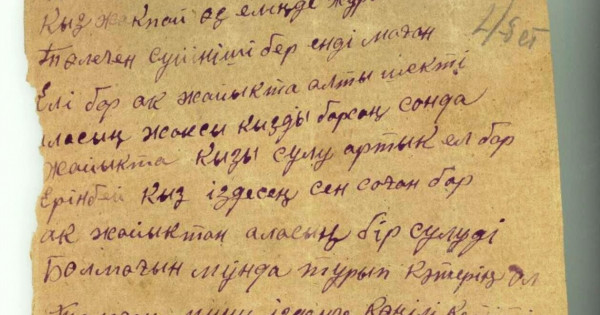 Кыз жакпай өз елиңде жүр
4/-бет
Төлечен сүйінші бер енді маған
Елі бар ак жайыкта алты шекті
аласың жаксы кызды барсаң сонда
Жайыкта кызы сулу артык ел бар
Ерінбей кыз іздесең сен соған бар
ак жайыктан аласың бір сулуді
Болмағын мұнда турып кәтерің ол
іздеп көңілі